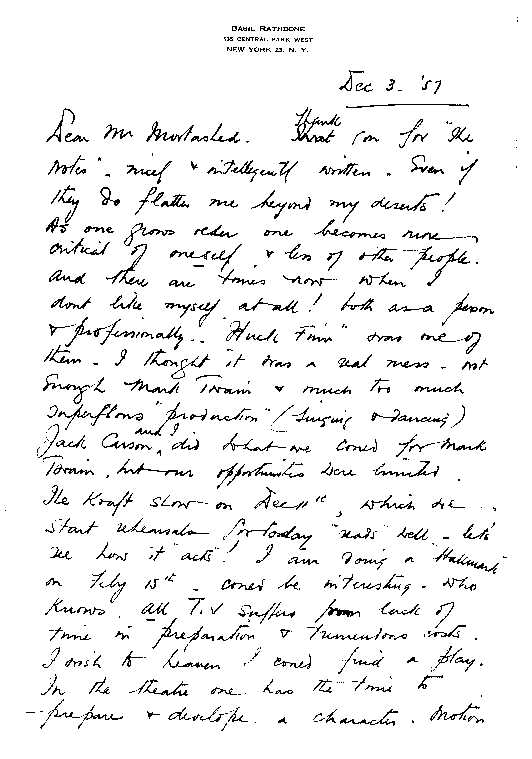 BASIL RATHBONE
135 CENTRAL PARK WEST
NEW YORK 23, N. Y.
Dec 3. '57
Dear Mr Murtashed. Thank you for "the
notes" - nicely & intelligently written. Even if
they do flatter me beyond my deserts!
As one grows older one becomes more
critical of oneself & less of other people.
And there are times now when I
dont like myself at all! both as a person
& professionally. "Huck Finn" was one of
them - I thought it was a real mess - not
enough Mark Twain & much too much
superflous "production" (singing & dancing)
Jack Carson, and I did what we could for Mark
Twain, but our opportunities were limited.
The Kraft show on Dec 11th, which we
start rehearsals for today "reads" well - let's
see how it "acts"! I am doing a "Hallmark"
on Feby 10th - could be interesting - who
knows. All T.V suffers from lack of
time in preparation & tremendous costs.
I wish to heaven I could find a play.
In the theatre one has the time to
prepare & develope a character. Motion